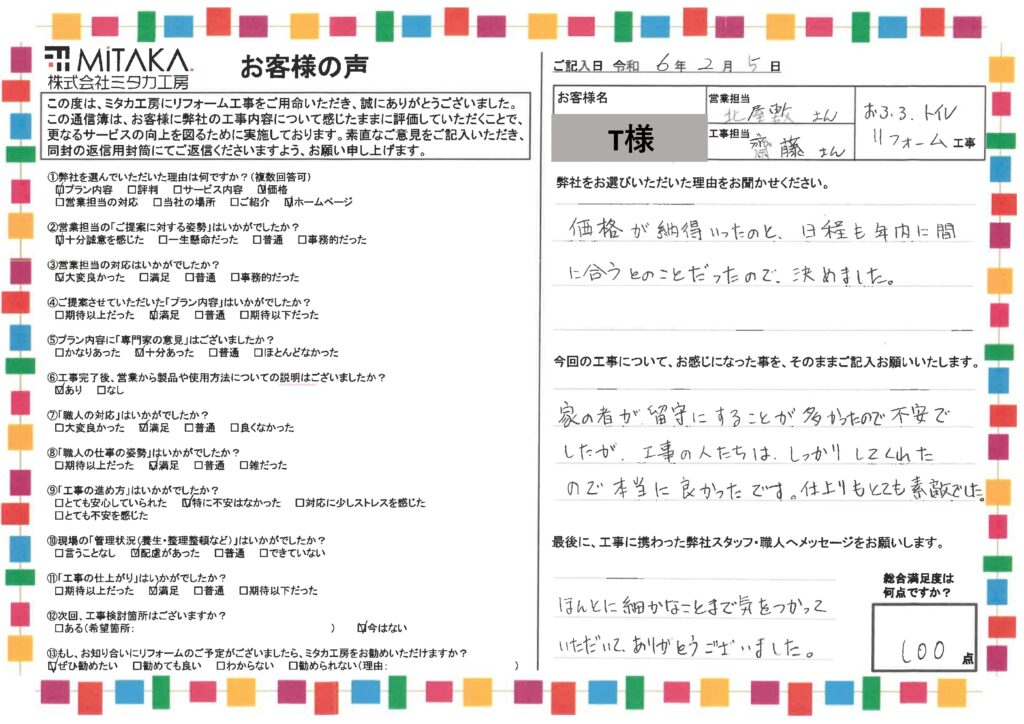 MiTAKA
株式会社ミタカ工房
お客様の声
この度は、ミタカ工房にリフォーム工事をご用命いただき、誠にありがとうございました。
この通信簿は、お客様に弊社の工事内容について感じたままに評価していただくことで、
更なるサービスの向上を図るために実施しております。素直なご意見をご記入いただき、
同封の返信用封筒にてご返信くださいますよう、お願い申し上げます。
①弊社を選んでいただいた理由は何ですか？（複数回答可）
☑プラン内容 □評判 □サービス内容 ☑価格
□営業担当の対応 □当社の場所 □ご紹介 ☑ホームページ
②営業担当の「ご提案に対する姿勢」はいかがでしたか？
☑十分誠意を感じた □一生懸命だった □普通 □事務的だった
③営業担当の対応はいかがでしたか？
☑大変良かった □満足 □普通 □事務的だった
④ご提案させていただいた「プラン内容」はいかがでしたか？
□期待以上だった ☑満足 □普通 □期待以下だった
⑤プラン内容に「専門家の意見」はございましたか？
□かなりあった ☑十分あった □普通 □ほとんどなかった
⑥工事完了後、営業から製品や使用方法についての説明はございましたか？
☑あり □なし
⑦「職人の対応」はいかがでしたか？
□大変良かった ☑満足 □普通 □良くなかった
⑧「職人の仕事の姿勢」はいかがでしたか？
□期待以上だった ☑満足 □普通 □雑だった
⑨「工事の進め方」はいかがでしたか？
□とても安心していられた ☑特に不安はなかった □対応に少しストレスを感じた
□とても不安を感じた
⑩現場の「管理状況（養生・整理整頓など）」はいかがでしたか？
□言うことなし ☑配慮があった □普通 □できていない
⑪「工事の仕上がり」はいかがでしたか？
□期待以上だった ☑満足 □普通 □期待以下だった
⑫次回、工事検討箇所はございますか？
□ある（希望箇所： ） ☑今はない
⑬もし、お知り合いにリフォームのご予定がございましたら、ミタカ工房をお勧めいただけますか？
☑ぜひ勧めたい □勧めても良い □わからない □勧められない（理由： ）
ご記入日 令和 6 年 2 月 5 日
お客様名
T様
営業担当
北屋敷 さん
工事担当
齋藤 さん
おふろ、トイレ
リフォーム 工事
弊社をお選びいただいた理由をお聞かせください。
価格が納得いったのと、日程も年内に間
に合うとのことだったので、決めました。
今回の工事について、お感じになった事を、そのままご記入お願いいたします。
家の者が留守にすることが多かったので不安で
したが、工事の人たちは、しっかりしてくれた
ので本当に良かったです。仕上りもとても素敵でした。
最後に、工事に携わった弊社スタッフ・職人へメッセージをお願いします。
ほんとに細かなことまで気をつかって
いただいて、ありがとうございました。
総合満足度は
何点ですか？
100 点